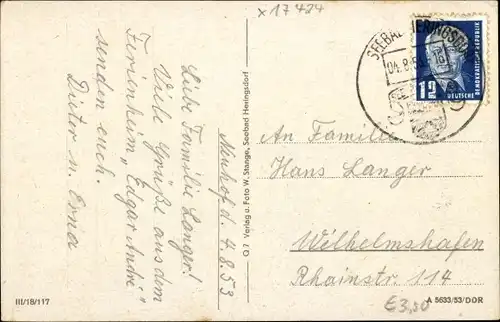 x 17424
Neuhof d. 4.8.53
Liebe Familie Langer!
Viele Grüße aus dem
Ferienheim „Edgar André"
senden euch.
Dieter u. Erna
III/18/117
O 7 Verlag u. Foto W. Stange, Seebad Heringsdorf
SEEBAD HERINGSDORF
04.8.53
12
DEUTSCHE
DEMOKRATISCHE REPUBLIK
An Familie
Hans Langer
Wilhelmshafen
Rhainstr. 114
€3,50
A 5633/53/DDR